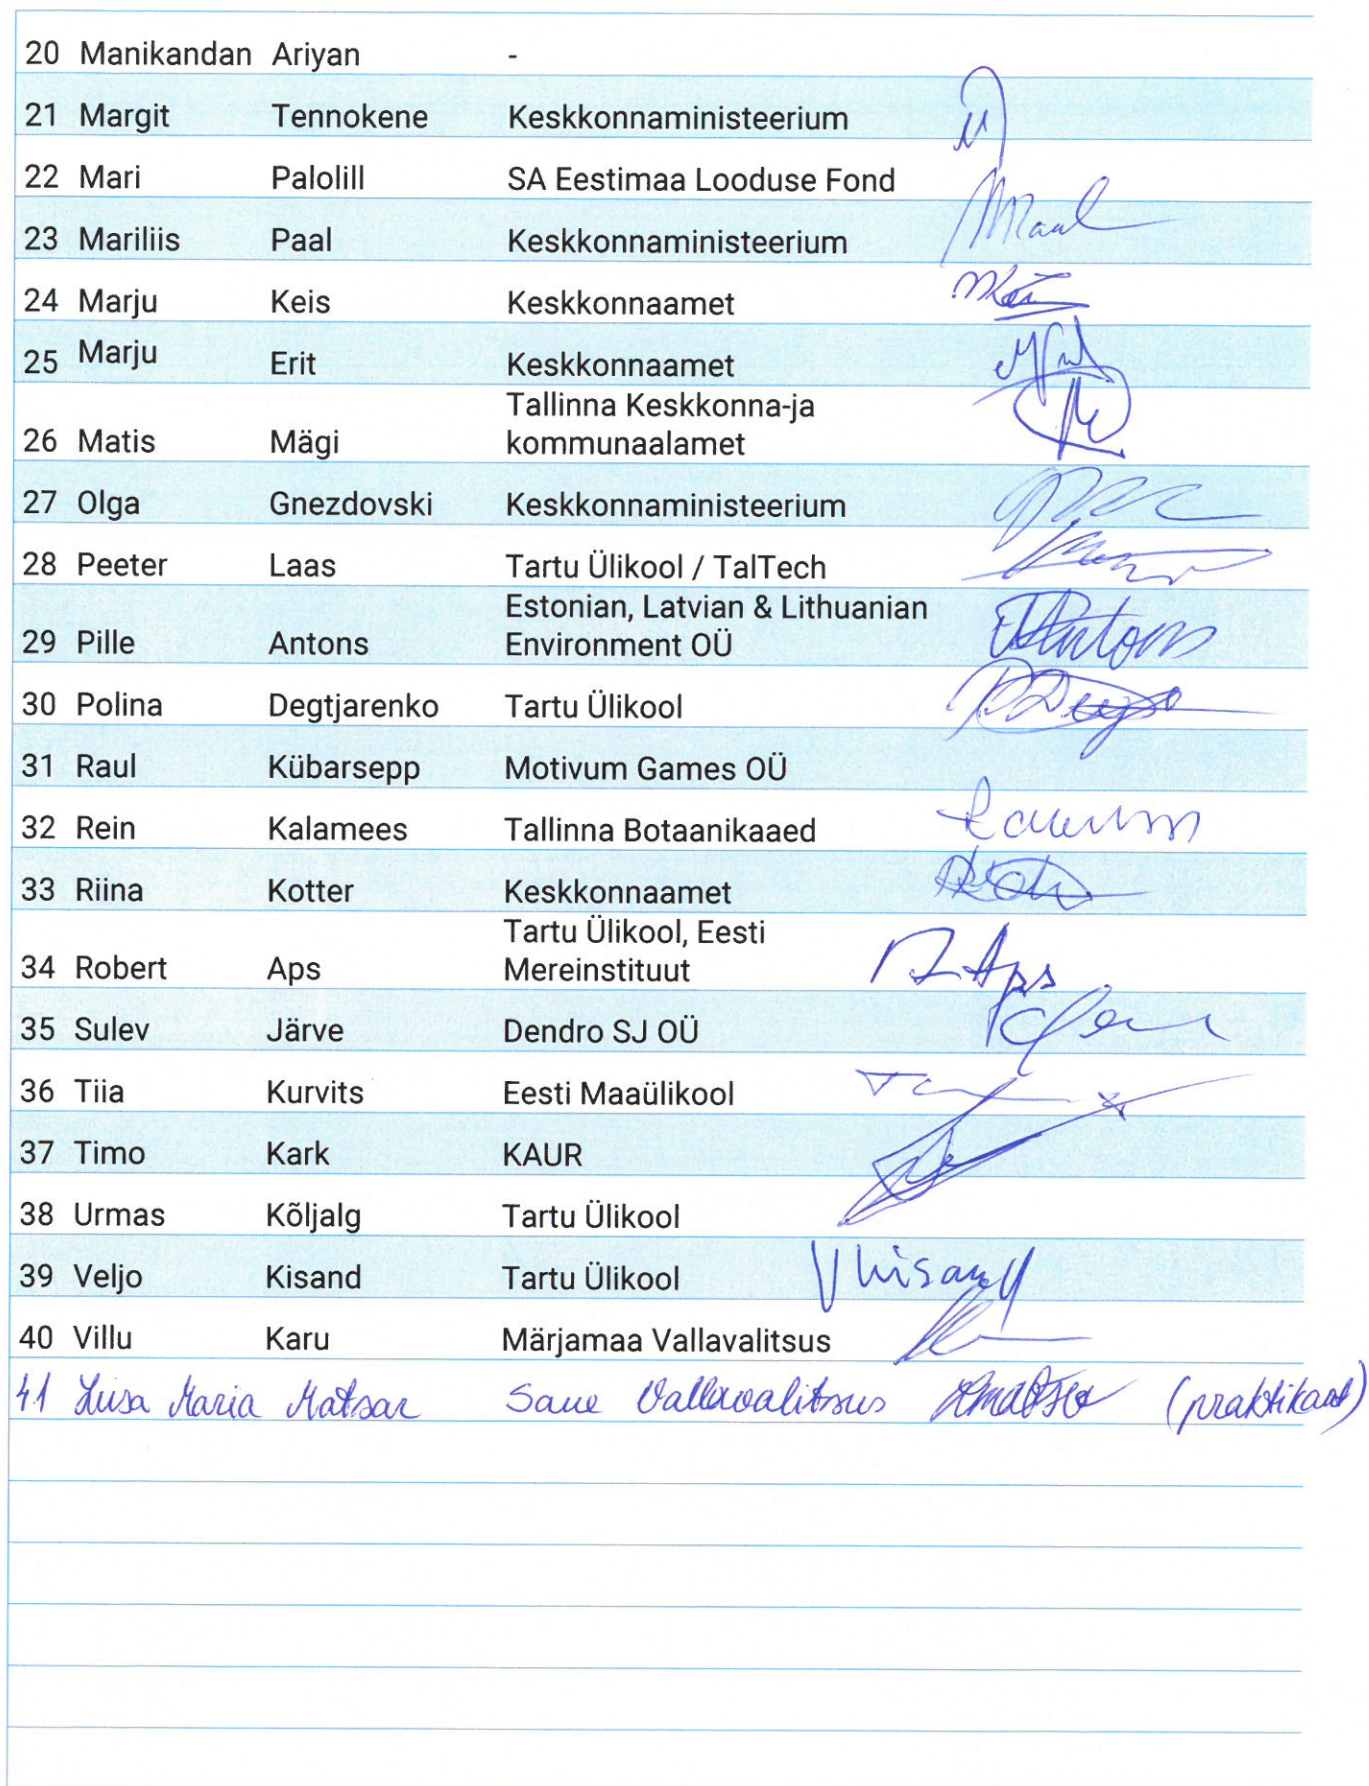 20 Manikandan Ariyan -
21 Margit Tennokene Keskkonnaministeerium
22 Mari Palolill SA Eestimaa Looduse Fond
23 Mariliis Paal Keskkonnaministeerium MPaal
24 Marju Keis Keskkonnaamet
25 Marju Erit Keskkonnaamet
Tallinna Keskkonna-ja
26 Matis Mägi kommunaalamet
27 Olga Gnezdovski Keskkonnaministeerium
28 Peeter Laas Tartu Ülikool / TalTech
Estonian, Latvian & Lithuanian
29 Pille Antons Environment OÜ Antons
30 Polina Degtjarenko Tartu Ülikool
31 Raul Kübarsepp Motivum Games OÜ
32 Rein Kalamees Tallinna Botaanikaaed
33 Riina Kotter Keskkonnaamet
Tartu Ülikool, Eesti
34 Robert Aps Mereinstituut R Aps
35 Sulev Järve Dendro SJ OÜ
36 Tiia Kurvits Eesti Maaülikool
37 Timo Kark KAUR
38 Urmas Kõljalg Tartu Ülikool
39 Veljo Kisand Tartu Ülikool V Kisand
40 Villu Karu Märjamaa Vallavalitsus
41 Liisa Maria Matsar Saue Vallavalitsus (praktikant)